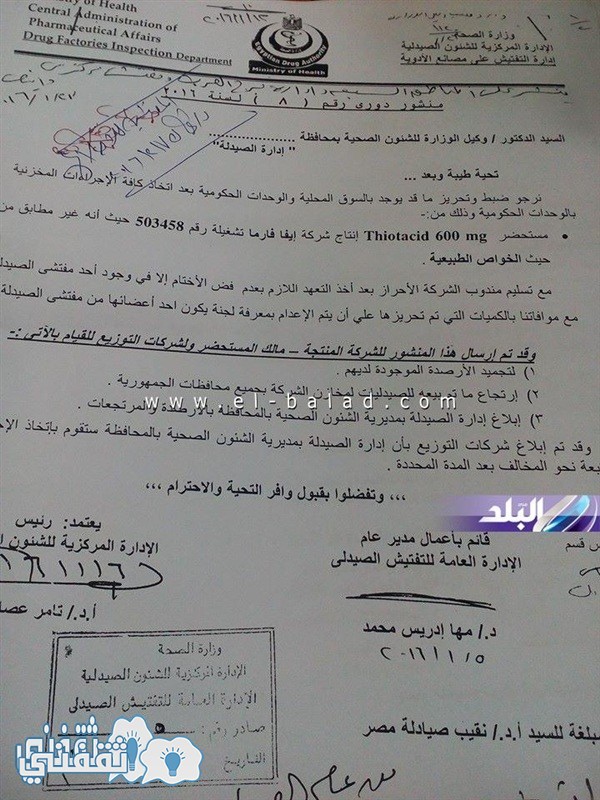 Ministry of Health
Central Administration of
Pharmaceutical Affairs
Drug Factories Inspection Department
Egyptian Drug Authority
Ministry of Health
وزارة الصحة
الإدارة المركزية للشئون الصيدلية
إدارة التفتيش على مصانع الأدوية
منشور دورى رقم ( ٨ ) لسنة ٢٠١٦
السيد الدكتور / وكيل الوزارة للشئون الصحية بمحافظة ..................
" إدارة الصيدلة "
تحية طيبة وبعد ...
نرجو ضبط وتحريز ما قد يوجد بالسوق المحلية والوحدات الحكومية بعد اتخاذ كافة الإجراءات المخزنية
بالوحدات الحكومية وذلك من:-
• مستحضر Thiotacid 600 mg إنتاج شركة إيفا فارما تشغيلة رقم 503458 حيث أنه غير مطابق من
حيث الخواص الطبيعية .
مع تسليم مندوب الشركة الأحراز بعد أخذ التعهد اللازم بعدم فض الأختام إلا في وجود أحد مفتشى الصيدلة
مع موافاتنا بالكميات التي تم تحريزها علي أن يتم الإعدام بمعرفة لجنة يكون احد أعضائها من مفتشى الصيدلة
وقد تم إرسال هذا المنشور للشركة المنتجة – مالك المستحضر ولشركات التوزيع للقيام بالآتى :-
١) لتجميد الأرصدة الموجودة لديهم .
٢) إرتجاع ما تم بيعه للصيدليات لمخازن الشركة بجميع محافظات الجمهورية .
www.el-balad.com
٣) إبلاغ إدارة الصيدلة بمديرية الشئون الصحية بالمحافظة بالأرصدة والمرتجعات .
وقد تم إبلاغ شركات التوزيع بأن إدارة الصيدلة بمديرية الشئون الصحية بالمحافظة ستقوم بإتخاذ
نحو المخالف بعد المدة المحددة .
وتفضلوا بقبول وافر التحية والاحترام ،،،
البلد
قائم بأعمال مدير عام
الإدارة العامة للتفتيش الصيدلى
د./ مها إدريس محمد
٢٠١٦/١/٥
يعتمد: رئيس
الإدارة المركزية للشئون
أ.د./ تامر
وزارة الصحة
الإدارة المركزية للشئون الصيدلية
الإدارة العامة للتفتيش الصيدلى
صادر رقم:
التاريخ
للسيد أ.د./ نقيب صيادلة مصر
ثقفني